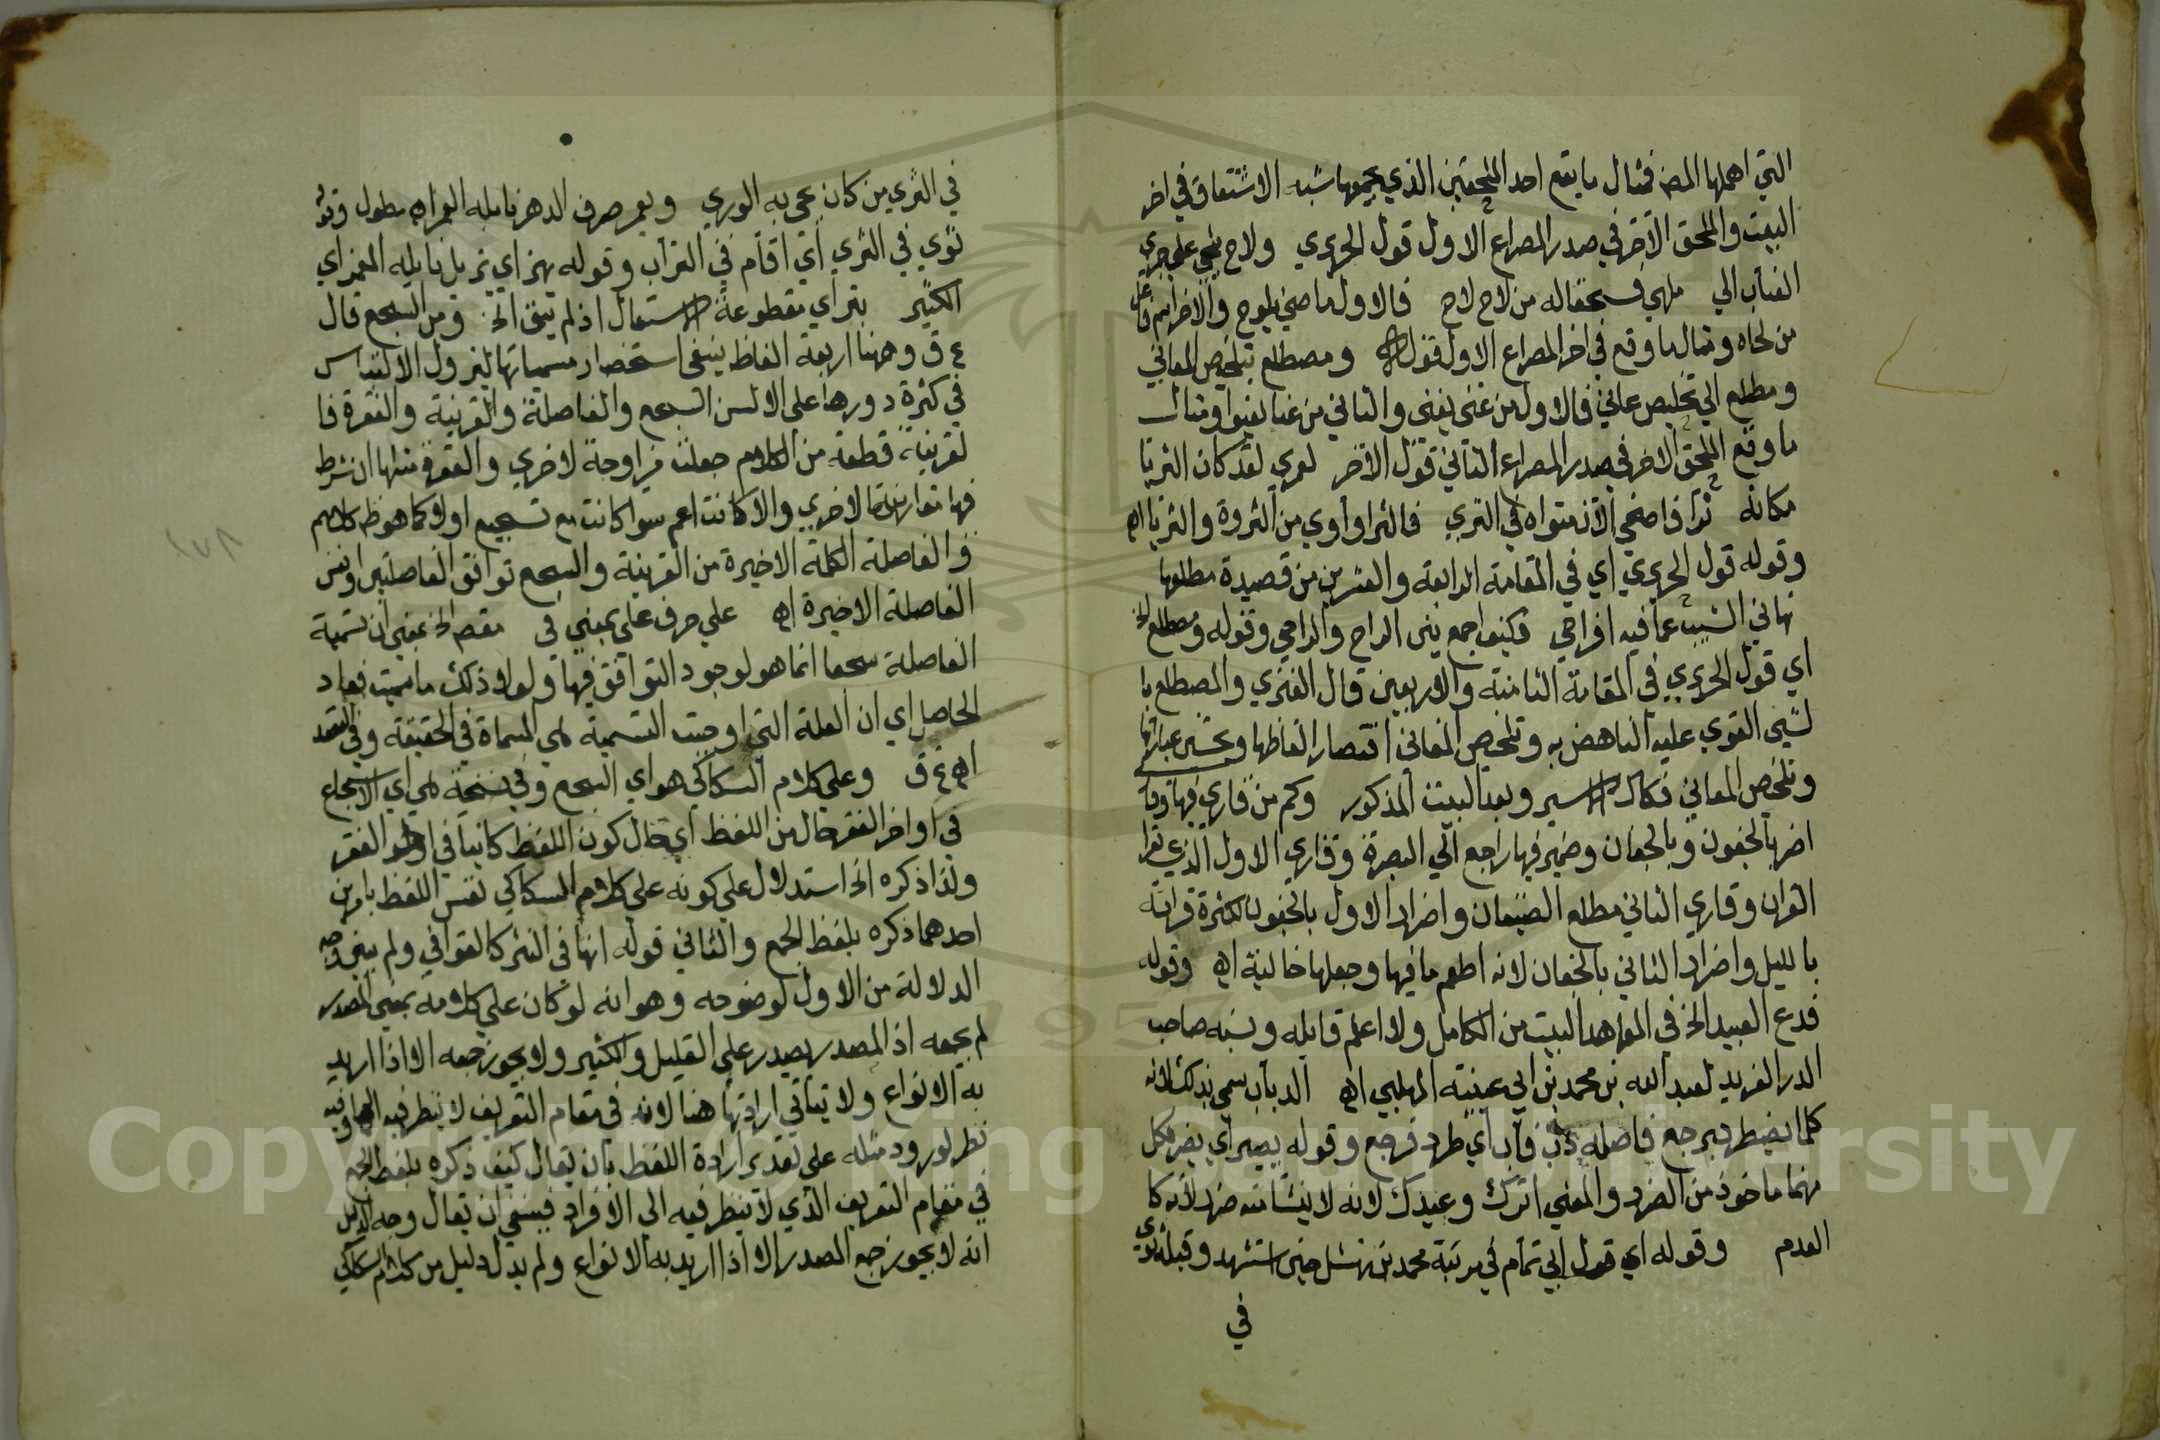 التي اهملها المص فمثال ما يقع احد الملحقين الذي يجمعهما شبه الاشتقاق في اخر
البيت والملحق الآخر في صدر المصراع الاول قول الحريري ولاح يلحي على جري
العنان الي ملهي فسحقا له من لاح لاح فالاول ماضي يلوح والآخر اسم فاعل
من لحاه ومثال ما وقع في اخر المصراع الاول قوله ومضطلع بتلخيص المعاني
ومطلع الي تخليص عاني فالاول من عنى يعنى والثاني من عنا يعنوا ومثال
ما وقع الملحق الاخر في صدر المصراع الثاني قول الآخر لعمري لقد كان الثريا
مكانه ثرا فاضحي الآن مثواه في الثري فالثرا واوي من الثروة والثريا اه
وقوله قول الحريري اي في المقامة الرابعة والعشرين من قصيدة مطلعها
نهاني الشيب عما فيه افراحي فكيف اجمع بين الراح والراحي وقوله ومضطلع الخ
اي قول الحريري في المقامة الثامنة والاربعين قال الفنري والمضطلع با
لشيي القوي عليه الناهض به وتلخيص المعاني اقتصار الفاظها وتحسين عبارتها
وتلخيص المعاني فكاك الاسير وبعد البيت المذكور وكم من قاري فيها وقار
اضرا بالجفون وبالجفان وضمير فيها راجع الي البصرة وقاري الاول الذي يقرا
القران وقاري الثاني مطعم الضيفان واضرار الاول بالجفون لكثرة قرائته
بالليل واضرار الثاني بالجفان لانه اطعم ما فيها وجعلها خالية اه وقوله
فدع الوعيد الخ في المعاهد البيت من الكامل ولا اعلم قايله ونسبه صاحب
الدر الفريد لعبد الله بن محمد بن ابي عيينة المهلبي اه الذباب سمي بذلك لانه
كلما يضطرد يرجع فاصله ذب فآب اي طرد فرجع وقوله يضير اي يضر فكل
منهما ماخوذ من الضرر والمعني اترك وعيدك لانه لا ينشا منه ضرر لأنه كا
لعدم وقوله اي قول ابي تمام في مرثية محمد بن نهشل حين استشهد وقبله ثوي
في
في الثري من كان يحيى به الوري ويغمر صرف الدهر نايله الغمر اه مطول وقوله
ثوي في الثري اي اقام في التراب وقوله يغمر اي يزيل نايله الغمر اي
الكثير بتر اي مقطوعة الاستعمال اذ لم يبق الخ ومن السجع قال
ع ق وههنا اربعة الفاظ ينبغي استحضار مسمياتها ليزول الالتباس
في كثرة دورها على الالسن السجع والفاصلة والقرينة والفقرة فا
لقرينة قطعة من الكلام جعلت مزاوجة لاخري والفقرة مثلها ان شرط
فيها مقارنتها لاخري والا كانت اعم سوا كانت مع تسجيع اولا كما هو ظ كلامهم
والفاصلة الكلمة الاخيرة من القرينة والسجع توافق الفاصلتين او نفس
الفاصلة الاخيرة اه علي حرف علي بمعني في مقصر الخ يعني ان تسمية
الفاصلة سجعا انما هو لوجود التوافق فيها ولولا ذلك ما سميت فعاد
الحاصل اي ان العلة التي اوجبت التسمية هي المسماة في الحقيقة وفي القصد
اه ع ق وعلي كلام السكاكي هو اي السجع وفي نسخة هي اي الاسجاع
في اواخر الفقر حال من اللفظ اي حال كون اللفظ كائنا في اواخر الفقر
ولذا ذكره الخ استدلال علي كونه علي كلام السكاكي نفس اللفظ بامرين
احدهما ذكره بلفظ الجمع والثاني قوله انها في النثر كالقوافي ولم يبين وجه
الدلالة من الاول لوضوحه وهو انه لو كان علي كلامه بمعني المصدر
لم يجمعه اذ المصدر يصدر علي القليل والكثير ولا يجوز جمعه الا اذا اريد
به الانواع ولا يتاتي ارادتها هنا لانه في مقام التعريف لا ينظر فيه الها وفيه
نظر لورود مثله علي تقدير ارادة اللفظ بان يقال كيف ذكره بلفظ الجمع
في مقام التعريف الذي لا ينظر فيه الى الافراد فينبغي ان يقال وجه الدليل
انه لا يجوز جمع المصدر الا اذا اريد به الانواع ولم يدل دليل من كلام السكاكي
Copyright © King Saud University